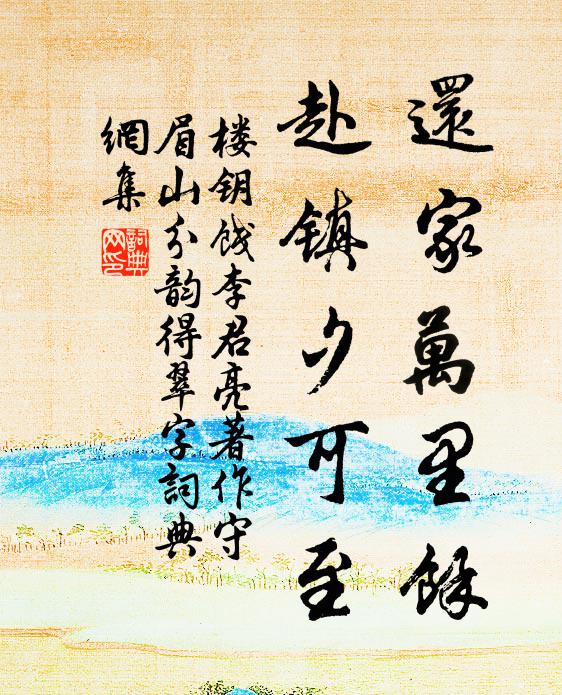 還家萬里餘
赴鎮夕可至
楼钥餞李君亮著作守
眉山分韵得翠字詞典
網集
詞典
网印